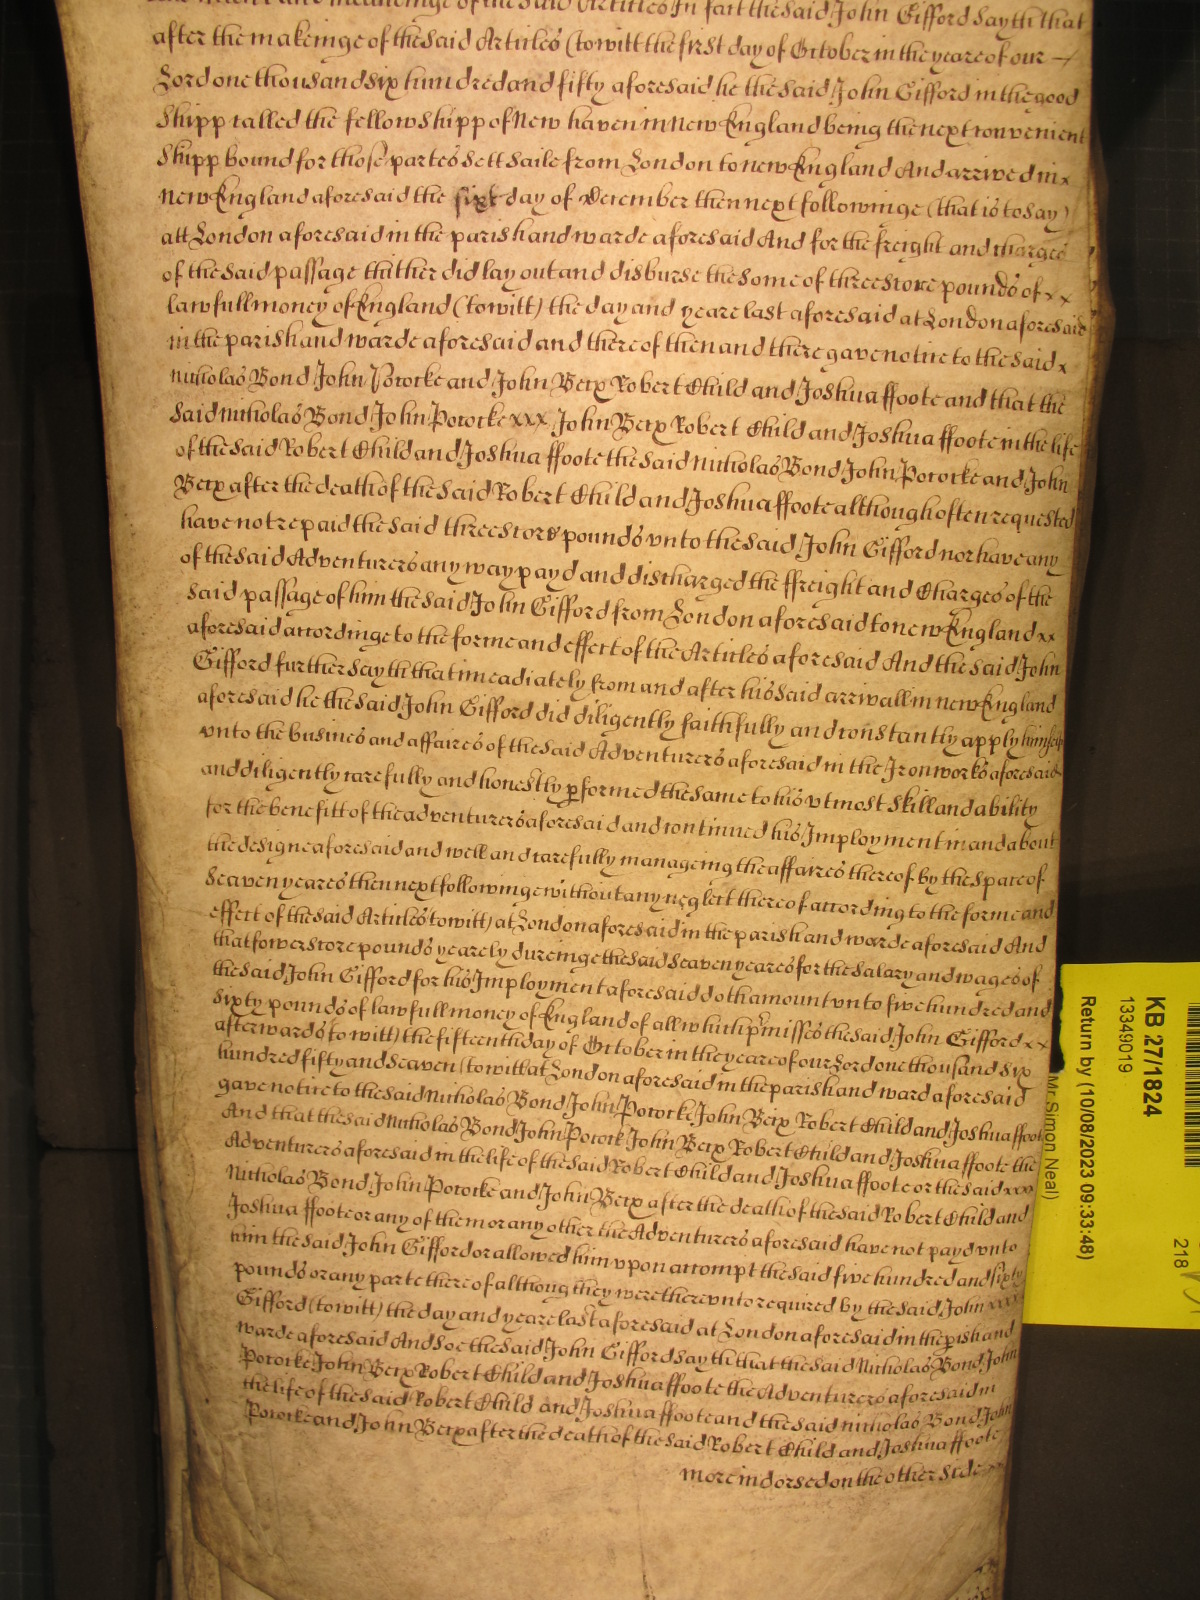 meaninge of the said Articles In fact the said John Gifford sayth that
after the makeinge of the said Articles (to witt the first day of October in the yeare of our
Lord one thousand six hundred and fifty aforesaid he the said John Gifford in the good
Shipp called the fellowshipp of New haven in new England being the next convenient
Shipp bound for those partes sett saile from London to new England And arrived in x
new England aforesaid the sixt day of December then next followinge (that is to say)
att London aforesaid in the parish and warde aforesaid And for the freight and charges
of the said passage thither did lay out and disburse the some of threescore pounds of x x
lawfull money of England (to witt) the day and yeare last aforesaid at London aforesaid
in the parish and warde aforesaid and thereof then and there gave notice to the said x
Nicholas Bond John Pococke and John Becx Robert Child and Joshua ffoote and that the
said Nicholas Bond John Pococke xxx John Becx Robert Child and Joshua ffoote in the life
of the said Robert Child and Joshua ffoote the said Nicholas Bond John Pococke and John
Becx after the death of the said Robert Child and Joshua ffoote although often requested
have not repaid the said threescore pounds vnto the said John Gifford nor have any
of the said Adventurers any way payd and discharged the ffreight and Charges of the
said passage of him the said John Gifford from London aforesaid to new England xx
aforesaid accordinge to the forme and effect of the Articles aforesaid And the said John
Gifford further sayth that imeadiately from and after his said arrivall in new England
aforesaid he the said John Gifford did diligently faithfully and constantly apply himself
vnto the busines and affaires of the said Adventurers aforesaid in the Ironworks aforesaid
and diligently carefully and honestly pformed the same to his vtmost skill and ability
for the benefitt of the adventurers aforesaid and continued his Imployment in and about
the designe aforesaid and well and carefully manageing the affaires thereof by the space of
seaven yeares then next followinge without any neglect thereof according to the forme and
effect of the said Articles to witt) at London aforesaid in the parish and warde aforesaid And
that fowerscore pounds yearely dureinge the said seaven yeares for the salary and wages of
the said John Gifford for his Imployment aforesaid doth amount vnto five hundred and
sixty pounds of lawfull money of England of all which pmisses the said John Gifford x x
afterwards to witt) the fifteenth day of October in the yeare of our Lord one thousand six
hundred fifty and seaven (to witt at London aforesaid in the parish and ward aforesaid
gave notice to the said Nicholas Bond John Pococke John Becx Robert Child and Joshua ffoote
And that the said Nicholas Bond John Pocock John Becx Robert Child and Joshua ffoote the
Adventurers aforesaid in the life of the said Robert Child and Joshua ffoote or the said xxx
Nicholas Bond John Pococke and John Becx after the death of the said Robert Child and
Joshua ffoote or any of them or any other the Adventurers aforesaid have not payd vnto
him the said John Gifford or allowed him vpon accompt the said five hundred and sixty
pounds or any parte thereof althoug they were therevnto required by the said John xxxx
Gifford (to witt) the day and yeare last aforesaid at London aforesaid in the pish and
warde aforesaid And soe the said John Gifford sayth that the said Nicholas Bond John
Pococke John Becx Robert Child and Joshua ffoote the Adventurers aforesaid in
the life of the said Robert Child and Joshua ffoote and the said nicholas Bond John
Pococke and John Becx after the death of the said Robert Child and Joshua ffoote
more indorsed on the other side
KB 27/1824
13349019
Return by (10/08/2023 09:33:48)
Mr Simon Neal)
218